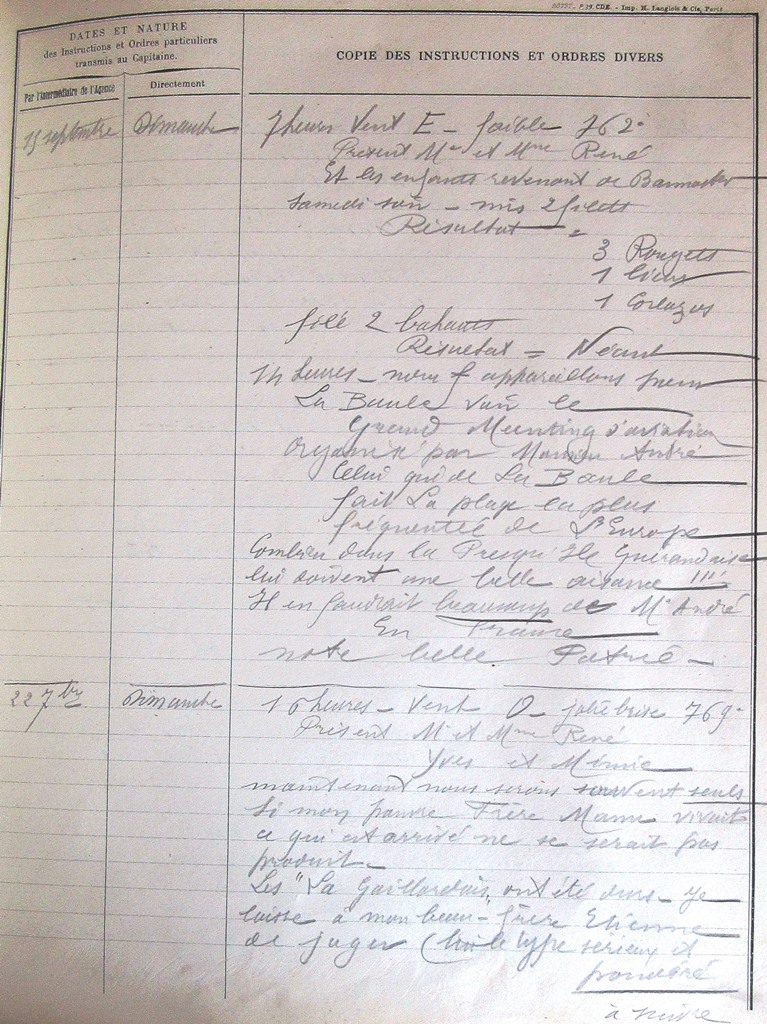 Imp. H. Langlois & Cie, Paris
DATES ET NATURE
des Instructions et Ordres particuliers
transmis au Capitaine.
COPIE DES INSTRUCTIONS ET ORDRES DIVERS
Par l'Intermédiaire de l'Agence
Directement
15 septembre Dimanche 7 heures Vent E - faible 762°
Présent Mr et Mme René
Et les enfants revenant de
Samedi soir - mis 2 filets
Résultat =
3 Rougets
1 lieu
1
filé 2 bahauts
Résultat = Néant
14 heures - nous appareillons pour
La Baule voir le
Grand Meeting d'aviation
organisé par Monsieur André
Celui qui de La Baule
fait La plage la plus
fréquentée de L'Europe
Combien dans la Presqu'Ile Guérandaise
lui doivent une belle aisance !!!
Il en faudrait beaucoup de Mr André
En France
note belle Patrie -
22 7bre Dimanche 16 heures - Vent O - jolie brise 769°
Présent Mr et Mme René
Yves et Mimie
maintenant nous serions souvent seuls
Si mon pauvre Frère Manu vivait
ce qui est arrivé ne se serait pas
produit -
Les "La Gaillardais" ont été durs - je
laisse à mon beau-frère Etienne
de juger ( le type sérieux et
pondéré
à suivre